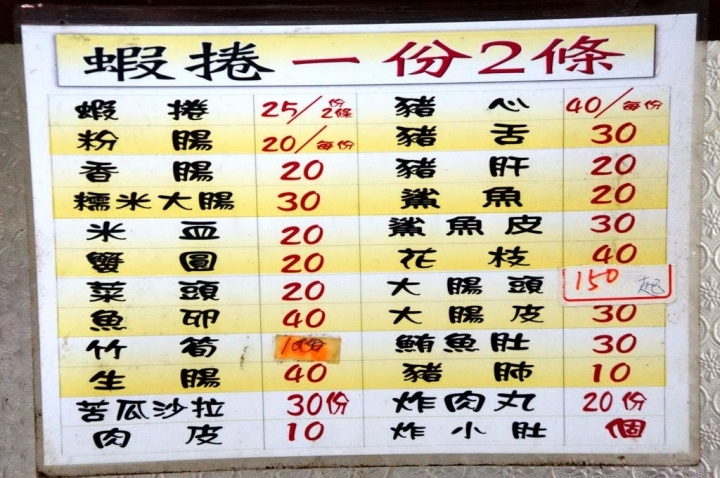 蝦捲一份2條
蝦捲 25/份2條 豬心 40/每份
粉腸 20/每份 豬舌 30
香腸 20 豬肝 20
糯米大腸 30 鯊魚 20
米血 20 鯊魚皮 30
蟹圓 20 花枝 40
菜頭 20 大腸頭 150起
魚卵 40 大腸皮 30
竹筍 鮪魚肚 30
生腸 40 豬肺 10
苦瓜沙拉 30份 炸肉丸 20份
肉皮 10 炸小肚 個